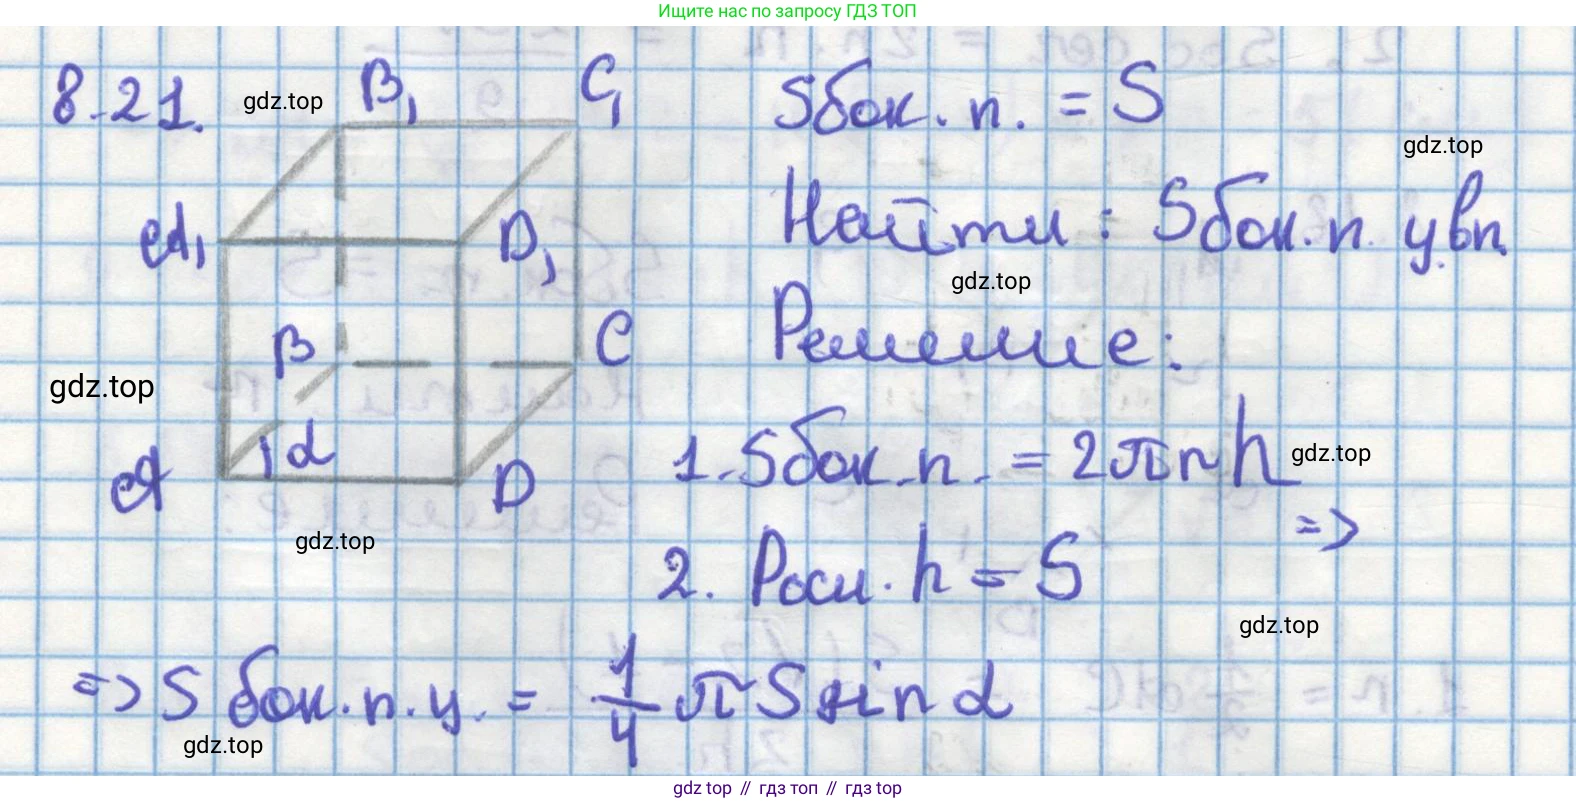 Ищите нас по запросу ГДЗ ТОП
8.21.
gdz.top
B₁
C₁
Sбок. п. = S
gdz.top
A₁
D₁
Найти : Sбок. п. ц. вп.
gdz.top
B
C
Решение:
gdz.top
α
1. Sбок. п. = 2πrh
gdz.top
A
D
=>
gdz.top
2. Pосн. h = S
gdz.top
=> S бок. п. ц. = 1/4 π S sin α
gdz.top
gdz.top // гдз топ // гдз top